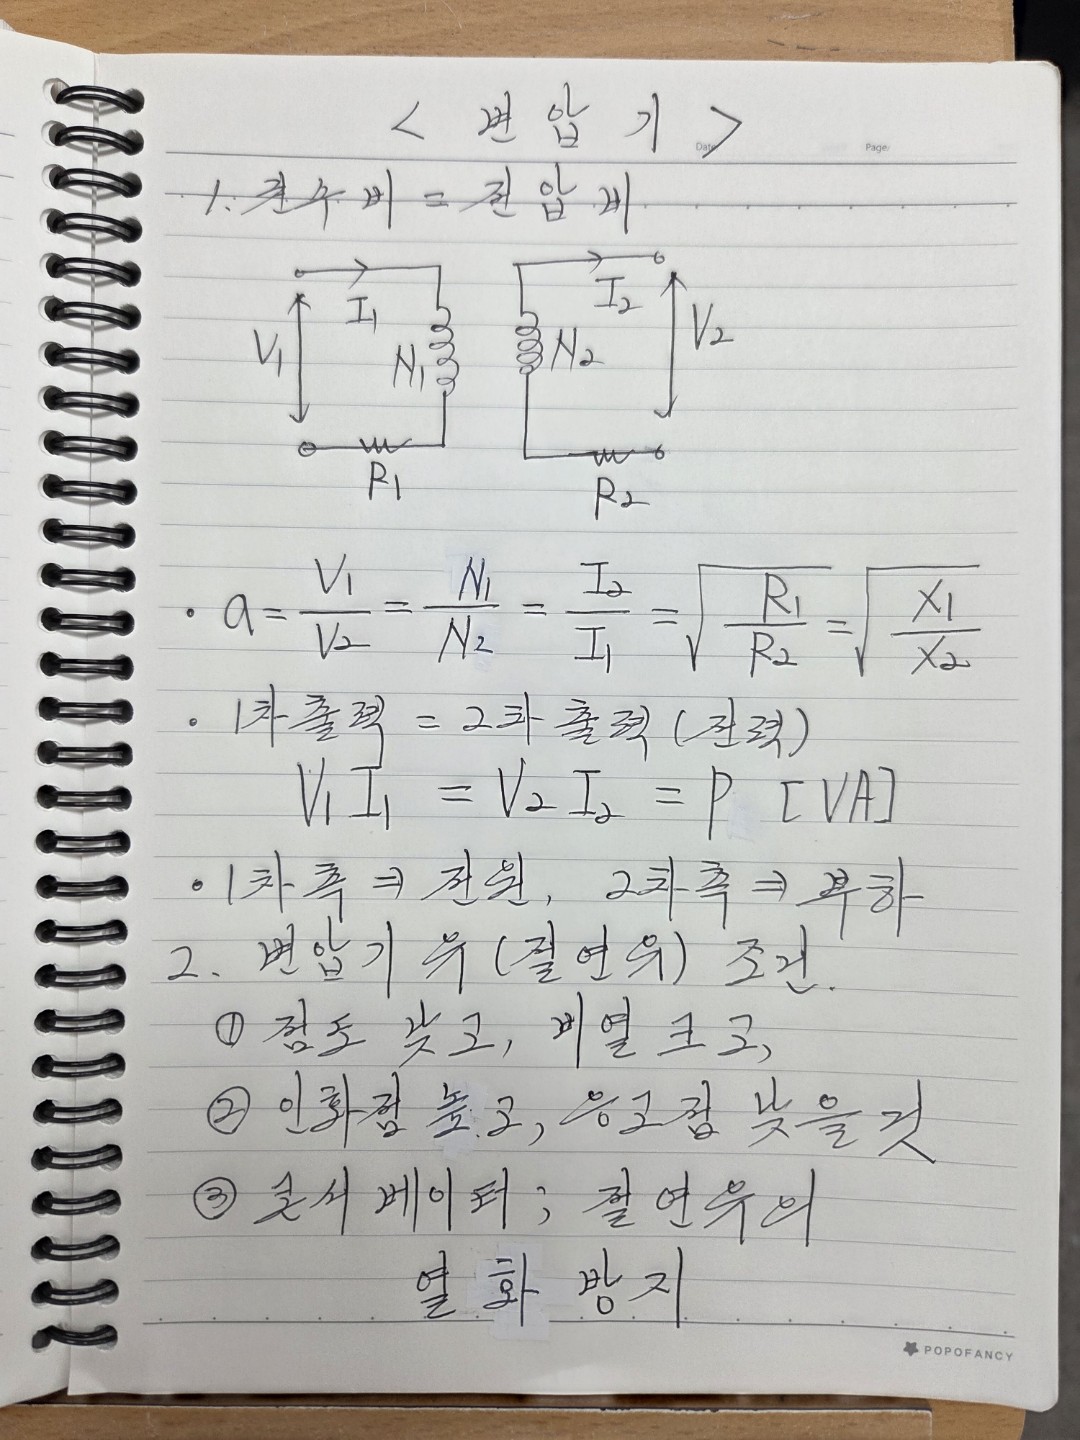 < 변 압 기 >
Date Page
1. 권수비 = 전압비
I1 I2
V1 N1 N2 V2
R1 R2
· a = V1/V2 = N1/N2 = I2/I1 = √(R1/R2) = √(X1/X2)
· 1차출력 = 2차출력(전력)
V1 I1 = V2 I2 = P [VA]
· 1차측 ⇒ 전원, 2차측 ⇒ 부하
2. 변압기 유(절연유) 조건.
① 점도 낮고, 비열 크고,
② 인화점 높고, 응고점 낮을것
③ 콘서베이터; 절연유의
열화방지
POPOFANCY